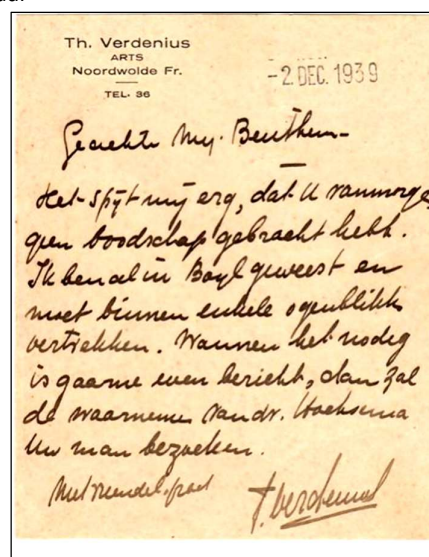 Th. Verdenius
ARTS
Noordwolde Fr.
TEL. 36
-2 DEC. 1939
Geachte Mej. Benthem
Het spijt mij erg, dat U vanmorge
geen boodschap gebracht hebt.
Ik ben al in Boyl geweest en
moet binnen enkele ogenblikk
vertrekken. Wanneer het nodig
is gaarne even bericht, dan zal
de waarnemer van dr. Hoeksema
Uw man bezoeken.
Met vriendel. groet
T. Verdenius